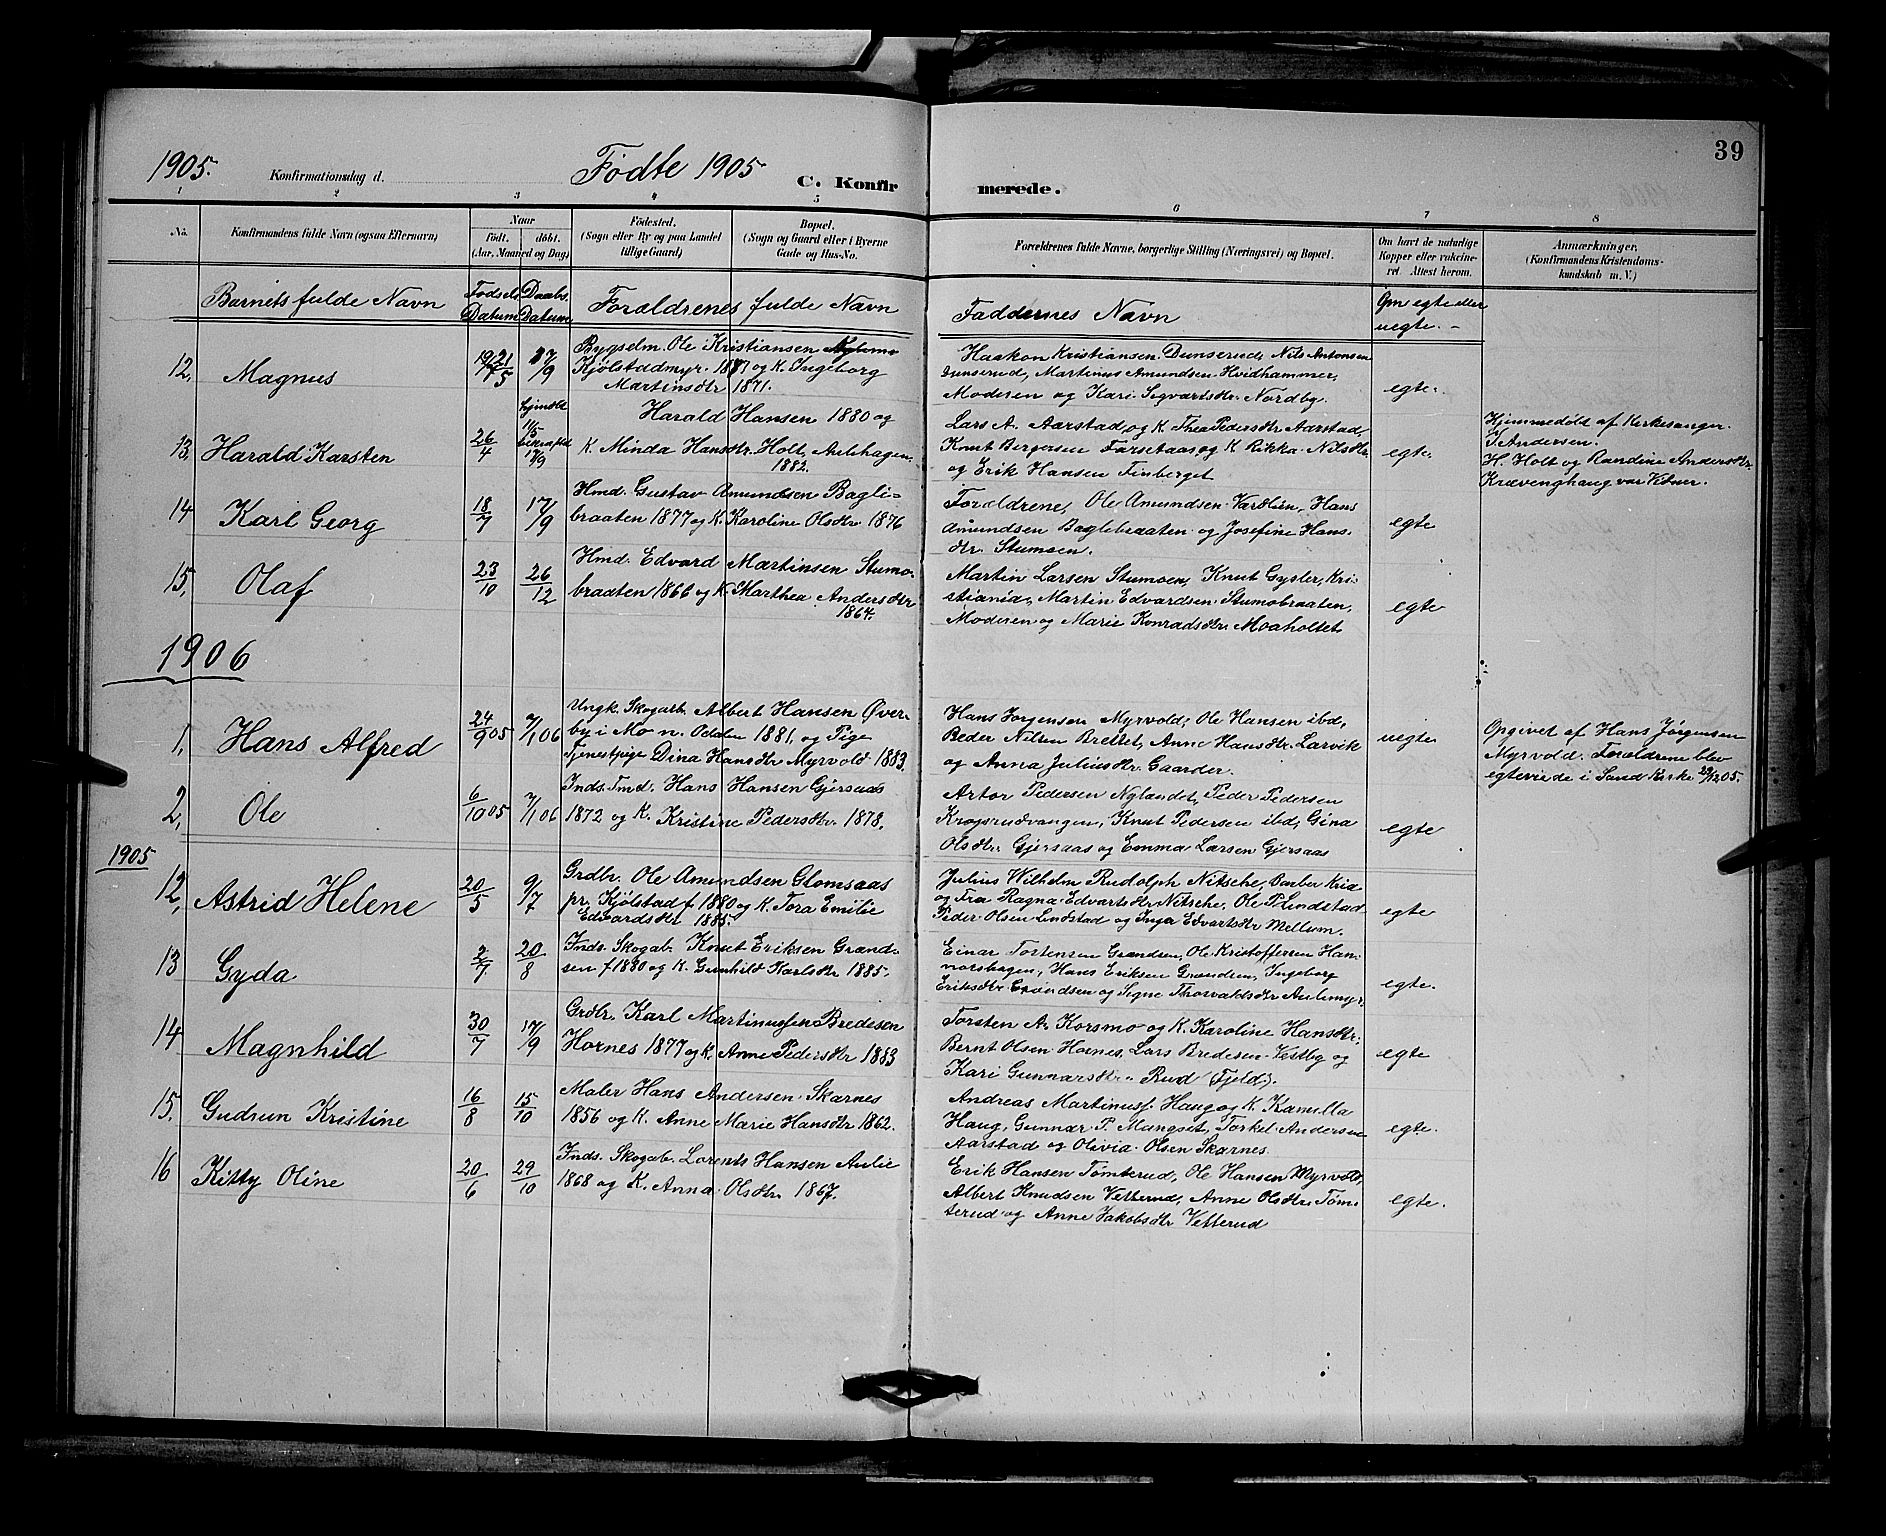 39
1905.
Konfirmationsdag d.
Fødte 1905
C. Konfir
merede.
1 2 3 4 5 6 7 8
No.
Konfirmandens fulde Navn (ogsaa Efternavn)
Naar
født.
døbt.
(Aar, Maaned og Dag)
Fødested.
(Sogn eller By og paa Landet
tillige Gaard)
Bopæl.
(Sogn og Gaard eller i Byerne
Gade og Hus-No.
Forældrenes fulde Navne, borgerlige Stilling (Næringsvei) og Bopæl.
Om havt de naturlige
Kopper eller vakcine-
ret. Attest herom.
Anmærkninger,
(Konfirmandens Kristendoms-
kundskab m. V.)
Barnets fulde Navn
Fødsels
Datum
Daabs
Datum
Forældrenes fulde Navn
Faddernes Navn
Om egte eller
uegte. -
12, Magnus
17/9
Bygselm. Ole Kristiansen
Kjølstadmyr. 1871 og K. Ingeborg
Martinsdtr 1871.
Haakon Kristiansen Dunserud, Nils Antonsen
Dunserud, Martinus Amundsen Hvidhammer,
Moderen og Kari Sigvartsdtr. Nordby.
egte.
13, Harald Karsten
26/4
hjemdøbt
11/5
bekræftet
17/9
Harald Hansen 1880 og
K. Minda Hansdtr. Holt, Aulihagen
1882.
Lars A. Aarstad og K. Thea Pedersdtr Aarstad
Knut Bergersen Farsetaas og K Rikka Nilsdtr
og Erik Hansen Finberget
egte.
Hjemmedøbt af Kirkesanger
T. Andersen.
H. Holt og Randine Andersdtr
Krævenghaug var Vidner.
14 Karl Georg
18/7
17/9
Hmd. Gustav Amundsen Bagli-
braaten 1877 og K. Karoline Olsdtr 1876
Forældrene, Ole Amundsen Vardlien, Hans
Amundsen Baglebraaten og Josefine Hans-
dtr. Stumoen.
egte
15, Olaf
23/10
26/12
Hmd. Edvard Martinsen Stumo-
braaten 1866 og K. Marthea Andersdtr
1864.
Martin Larsen Stumoen, Knut Gysler, Kri-
stiania, Martin Edvardsen Stumobraaten,
Moderen og Marie Konradsdtr. Moaholtet
egte
1906
1, Hans Alfred
24/9 05
7/1 06
Ungk. Skogarb. Albert Hansen Øver-
by i Mo n. Odalen 1881, og Pige
Tjenestpige Dina Hansdtr Myrvold 1883.
Hans Jørgensen Myrvold, Ole Hansen ibd,
Peder Nilsen Brettet, Anne Hansdtr. Larvik
og Anna Juliusdtr. Gaarder.
uegte
Opgivet af Hans Jørgensen
Myrvold. Forældrene blev
egteviede i Sand Kirke 29/12 05.
2, Ole
6/10 05
7/1 06
Inds. Tmd. Hans Hansen Gjersaas
1872 og K. Kristine Pedersdtr. 1878.
Artor Pedersen Nylandet, Peder Pedersen
Krogsrudvangen, Knut Pedersen ibd, Gina
Olsdtr. Gjersaas og Emma Larsen Gjersaas
egte
1905
12, Astrid Helene
20/5
9/7
Grdbr. Ole Amundsen Glomsaas
pr. Kjølstad f. 1880 og K. Tora Emilie
Edvardsdtr 1885.
Julius Wilhelm Rudolph Nitsche, Barber Kria
og Fra Ragna Edvartsdtr Nitsche, Ole P. Lindstad
Peder Olsen Lindstad og Inga Edvartsdtr Mellum.
egte
13 Gyda
2/7
20/8
Inds. Skogab. Knut Eriksen Grænd-
sen f 1880 og K. Gunhild Karlsdtr 1885.
Einar Torstensen Grændsen, Ole Kristoffersen Han-
norshagen, Hans Eriksen Grændsen, Ingeborg
Eriksdtr Grændsen og Signe Thorvaldsdtr Aulimyr.
egte.
14 Magnhild
30/7
17/9
Grdbr. Karl Martinussen Bredesen
Hornes 1877 og K. Anne Pedersdtr 1883
Torsten A. Korsmo og K. Karoline Hansdtr,
Bernt Olsen Hornes, Lars Bredesen Vestby og
Kari Gunnarsdtr. Rud (Fjeld).
egte
15, Gudrun Kristine
16/8
15/10
Maler Hans Andersen Skarnes
1856 og K. Anne Marie Hansdtr 1862.
Andreas Martinusf. Haug og K. Kamilla
Haug, Gunnar P. Mangset, Torkel Andersen
Aarstad og Olivia Olsen Skarnes.
egte.
16 Kitty Oline
20/6
29/10
Inds. Skogab. Lorents Hansen Aulie
1868 og K. Anna Olsdtr. 1867.
Erik Hansen Tømterud, Ole Hansen Myrvold,
Albert Knudsen Vetterud, Anne Olsdtr. Tøm-
terud og Anne Jakobsdtr Vetterud
egte.